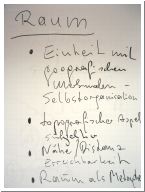 Raum
• Einheit mit
geografischen
Merkmalen -
Selbstorganisation
• topografischer Aspekt
• Nähe / Distanz
Erreichbarkeit
• Raum als Metapher